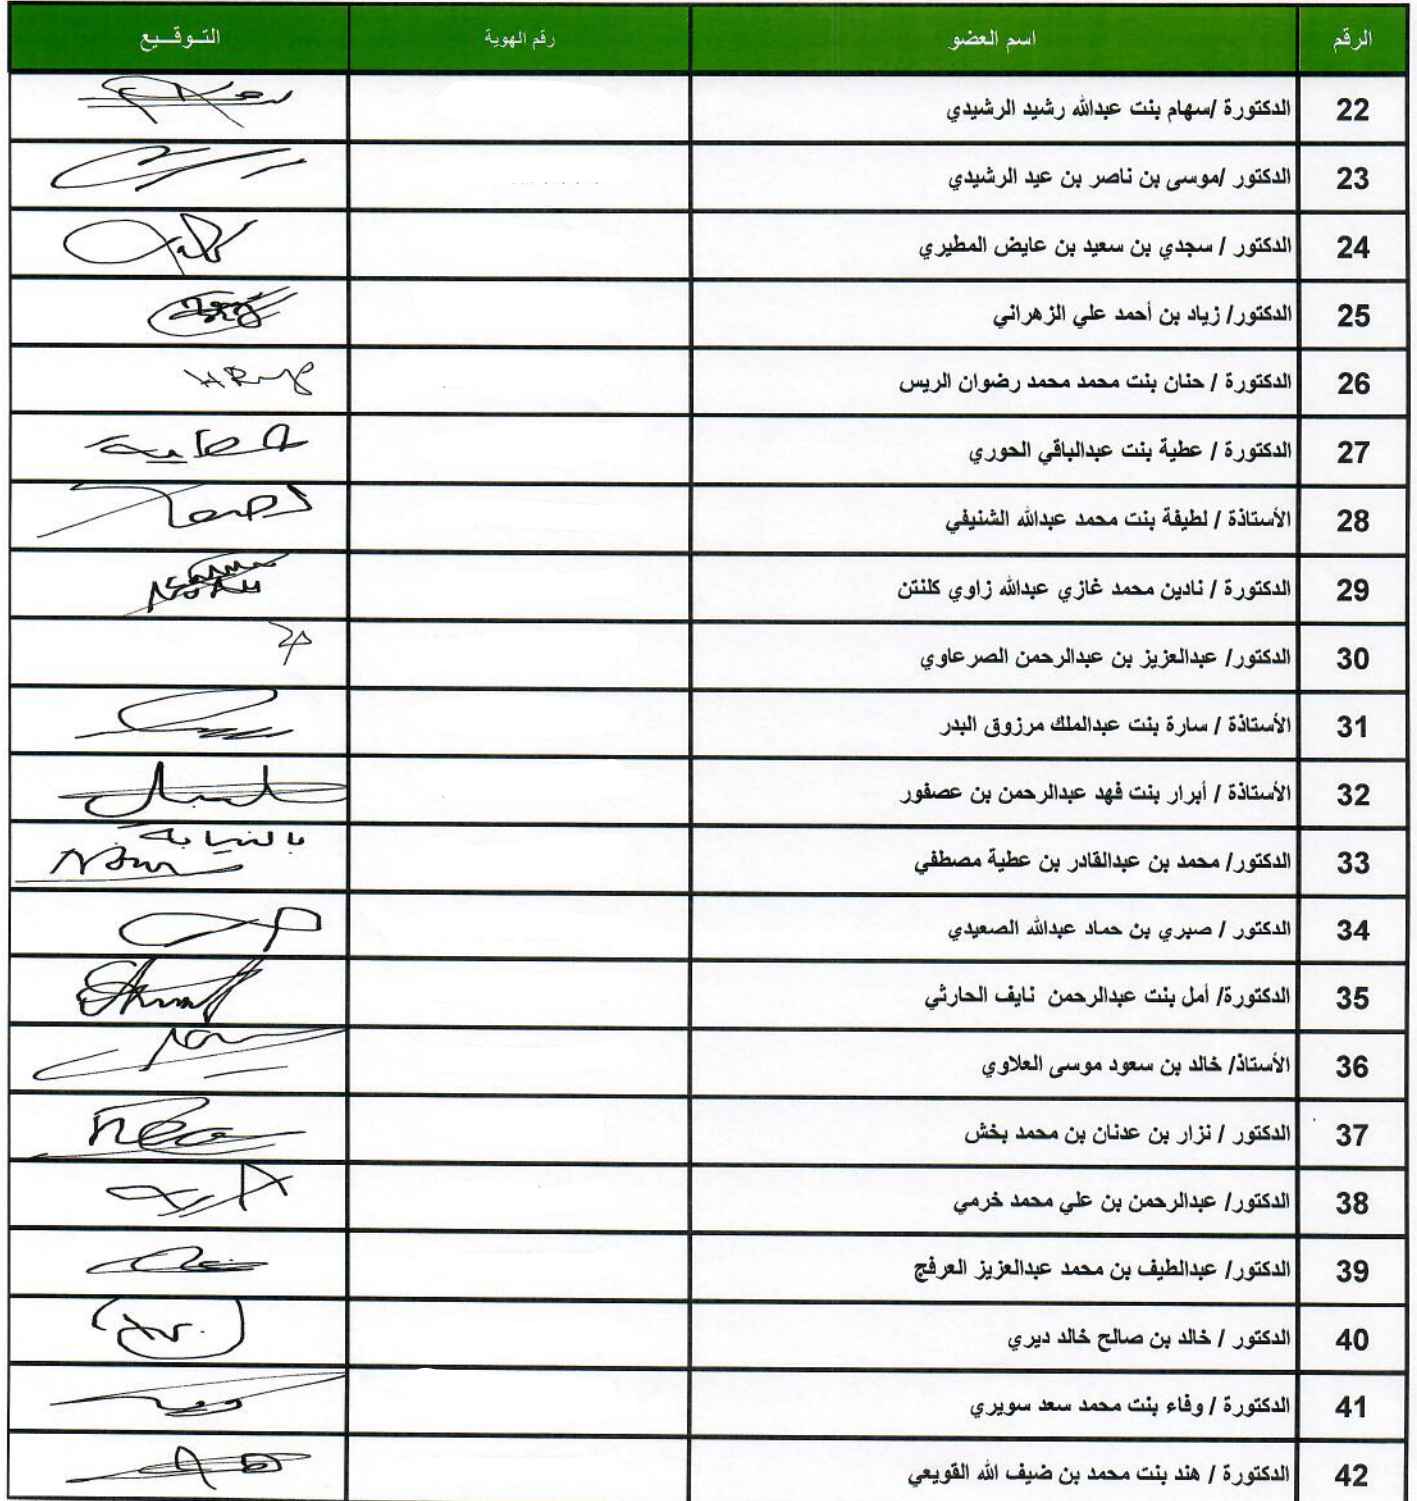 الرقم اسم العضو رقم الهوية التـوقـيع
22 الدكتورة /سهام بنت عبدالله رشيد الرشيدي
23 الدكتور /موسى بن ناصر بن عيد الرشيدي
24 الدكتور / سجدي بن سعيد بن عايض المطيري
25 الدكتور/ زياد بن أحمد علي الزهراني
26 الدكتورة / حنان بنت محمد محمد رضوان الريس
27 الدكتورة / عطية بنت عبدالباقي الحوري عطية
28 الأستاذة / لطيفة بنت محمد عبدالله الشنيفي
29 الدكتورة / نادين محمد غازي عبدالله زاوي كلنتن
30 الدكتور/ عبدالعزيز بن عبدالرحمن الصرعاوي
31 الأستاذة / سارة بنت عبدالملك مرزوق البدر
32 الأستاذة / أبرار بنت فهد عبدالرحمن بن عصفور
33 الدكتور/ محمد بن عبدالقادر بن عطية مصطفي بالنيابة
34 الدكتور / صبري بن حماد عبدالله الصعيدي
35 الدكتورة/ أمل بنت عبدالرحمن نايف الحارثي
36 الأستاذ/ خالد بن سعود موسى العلاوي
37 الدكتور / نزار بن عدنان بن محمد بخش
38 الدكتور/ عبدالرحمن بن علي محمد خرمي
39 الدكتور/ عبدالطيف بن محمد عبدالعزيز العرفج
40 الدكتور / خالد بن صالح خالد ديري
41 الدكتورة / وفاء بنت محمد سعد سويري
42 الدكتورة / هند بنت محمد بن ضيف الله القويعي